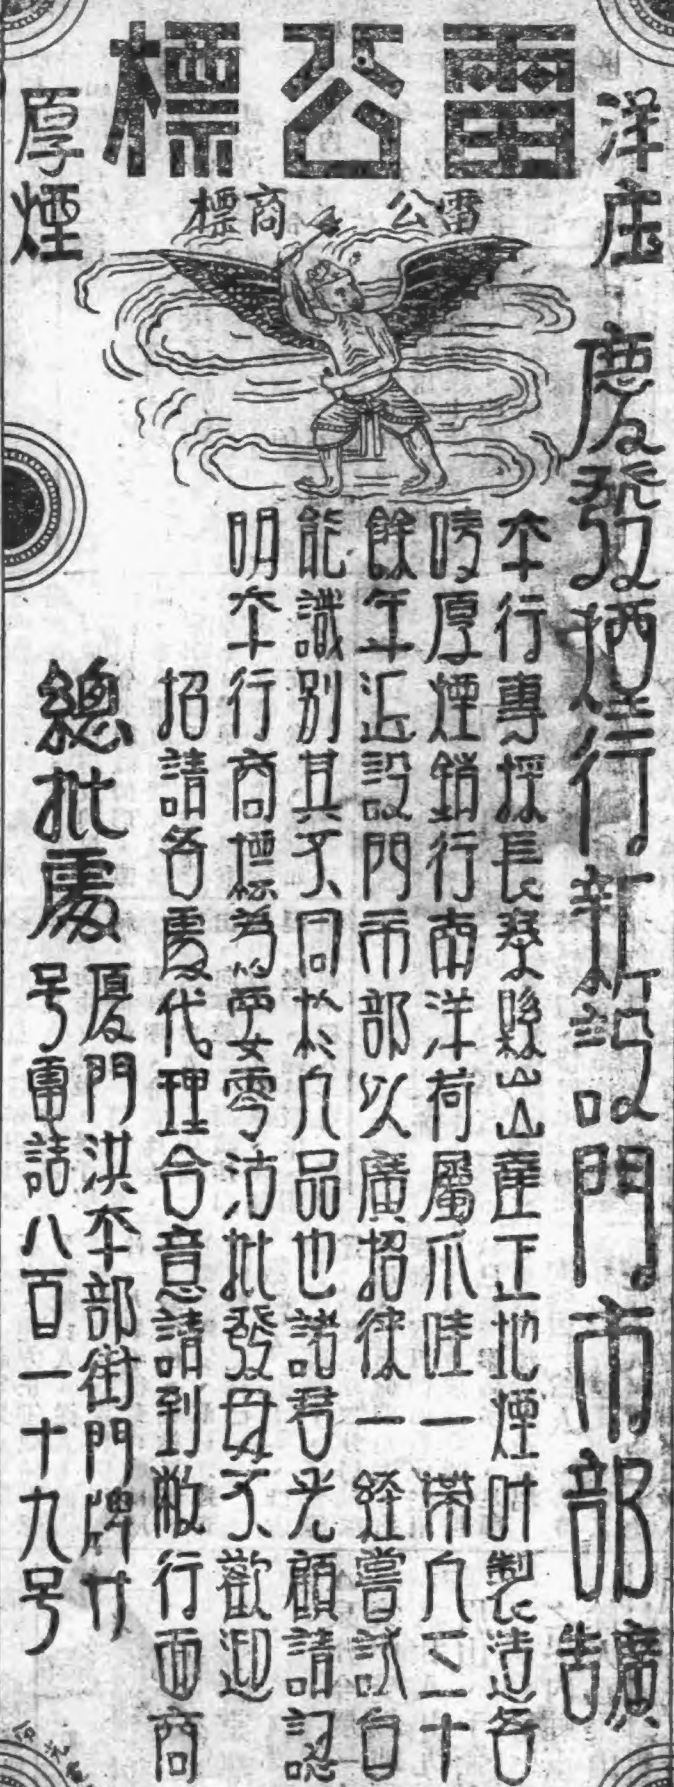 雷公標
洋庄
厚煙
雷公
商標
慶發煙行新設門市部廣告
夲行專採長泰縣出產正地煙叶製造各
嘜厚煙銷行南洋荷屬爪哇一帶凡三十
餘年近設門市部以廣招徠一經嘗試自
能識別其不同於凡品也諸君光顧請認
明夲行商標為要零沽批發毋不歡迎
招請各處代理合意請到敝行面商
總批處
厦門洪夲部街門牌廿
号電話八百一十九号